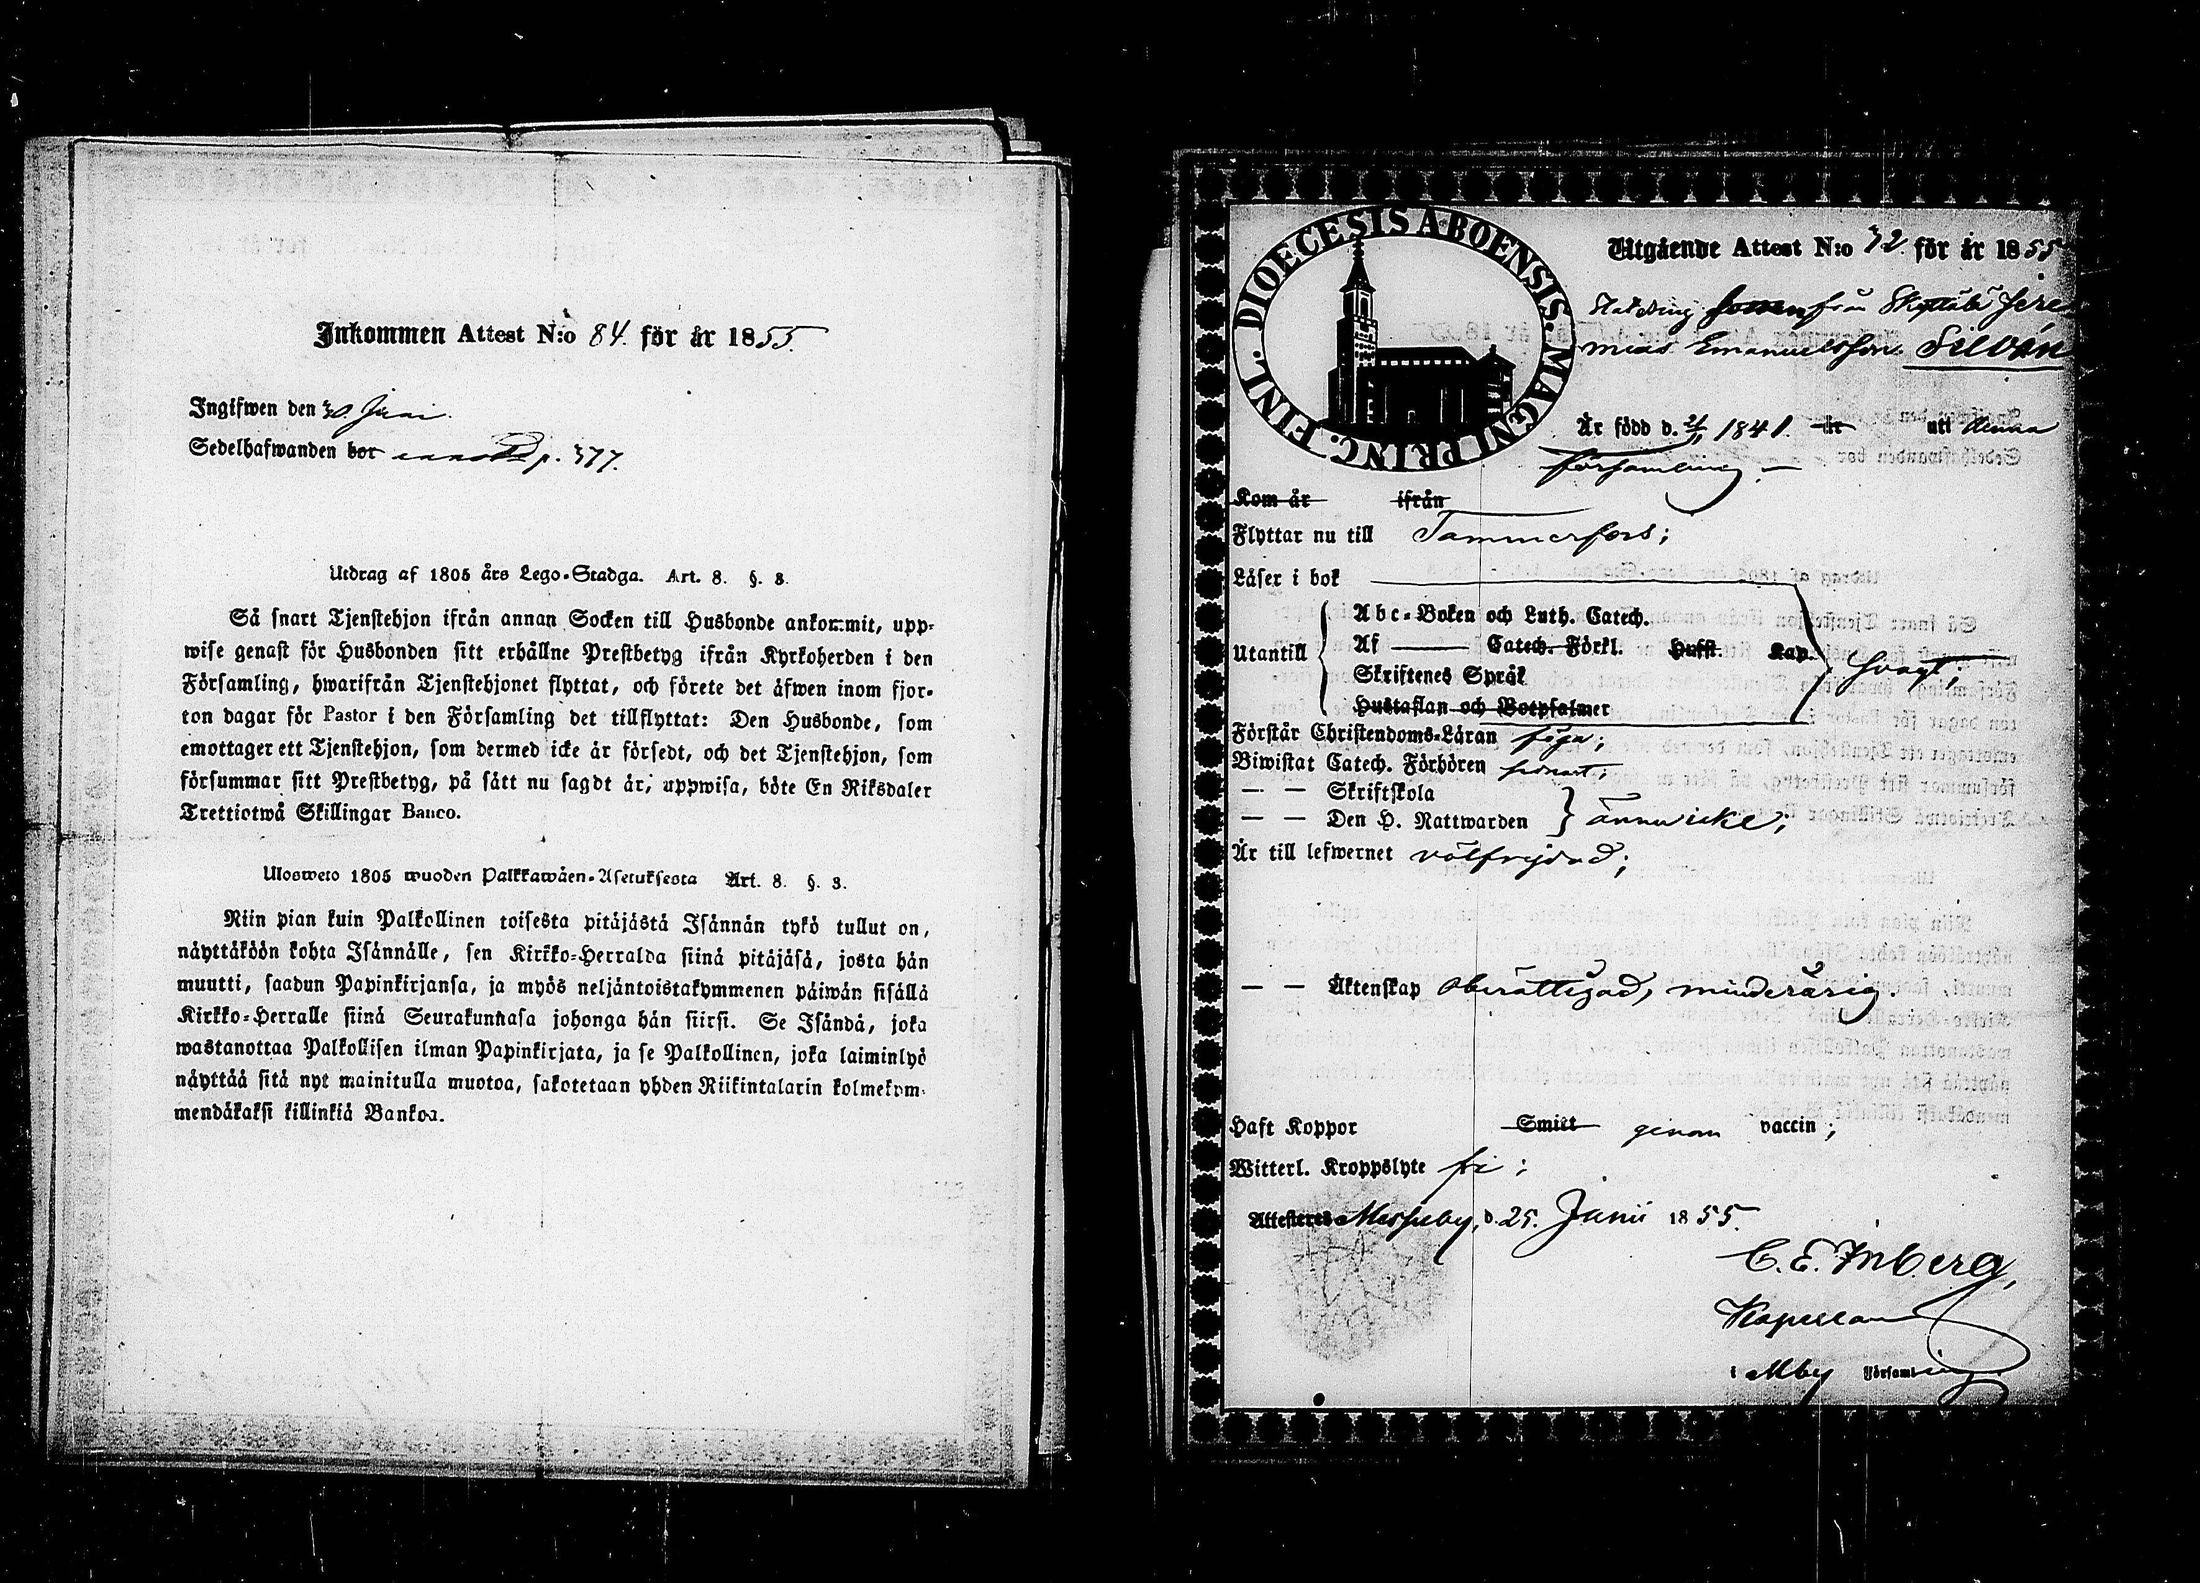 Inkommen Attest N:o 84. för år 1855.
Ingifwen den 30 Juni.
Sedelhafwanden bor p. 377.
Utdrag af 1805 års Lego-Stadga. Art. 8. §. 3.
Så snart Tjenstehjon ifrån annan Socken till Husbonde ankommit, upp-
wise genast för Husbonden sitt erhållne Prestbetyg ifrån Kyrkoherden i den
Församling, hwarifrån Tjenstehjonet flyttat, och förete det äfwen inom fjor-
ton dagar för Pastor i den Församling det tillflyttat: Den Husbonde, som
emottager ett Tjenstehjon, som dermed icke är försedt, och det Tjenstehjon, som
försummar sitt Prestbetyg, på sätt nu sagdt är, uppwisa, böte En Riksdaler
Trettiotwå Skillingar Banco.
Ulosweto 1805 wuoden Palkkawäen-Asetuksesta Art. 8. §. 3.
Niin pian kuin Palkollinen toisesta pitäjästä Isännän tykö tullut on,
näyttäköön kohta Isännälle, sen Kirkko-Herralda siinä pitäjäsä, josta hän
muutti, saadun Papinkirjansa, ja myös neljäntoistakymmenen päiwän sisällä
Kirkko-Herralle siinä Seurakunnasa johonga hän siirsi. Se Isändä, joka
wastanottaa Palkollisen ilman Papinkirjata, ja se Palkollinen, joka laiminlyö
näyttää sitä nyt mainitulla muotoa, sakotetaan yhden Riikintalarin kolmekym-
mendäkaksi killinkiä Bankoa.
DIOECESIS ABOENSIS. MAGNI PRINC. FINL.
Utgående Attest N:o 32. för år 1855
från Skyttälä Jere
mias Emanuelsson Silvén
Är född d. 1841. år uti denna
församling.
Kom år ifrån
Flyttar nu till Tammerfors;
Läser i bok
Utantill
Abc-Boken och Luth. Catech.
Af Catech. Förkl. Hufst. Kap.
Skriftenes Språk
Hustaflan och Botpsalmer
svagt;
Förstår Christendoms-Läran föga;
Biwistat Catech. Förhören
— — Skriftskola
— — Den H. Nattwarden ännu icke;
Är till lefwernet välfrejdad;
— — Äktenskap oberättigad, minderårig.
Haft Koppor Smitt genom vaccin;
Witterl. Kroppslyte fri;
Attesteres Messuby, d. 25. Junii 1855.
C. E. Inberg,
Kapellan
i Mby Församling